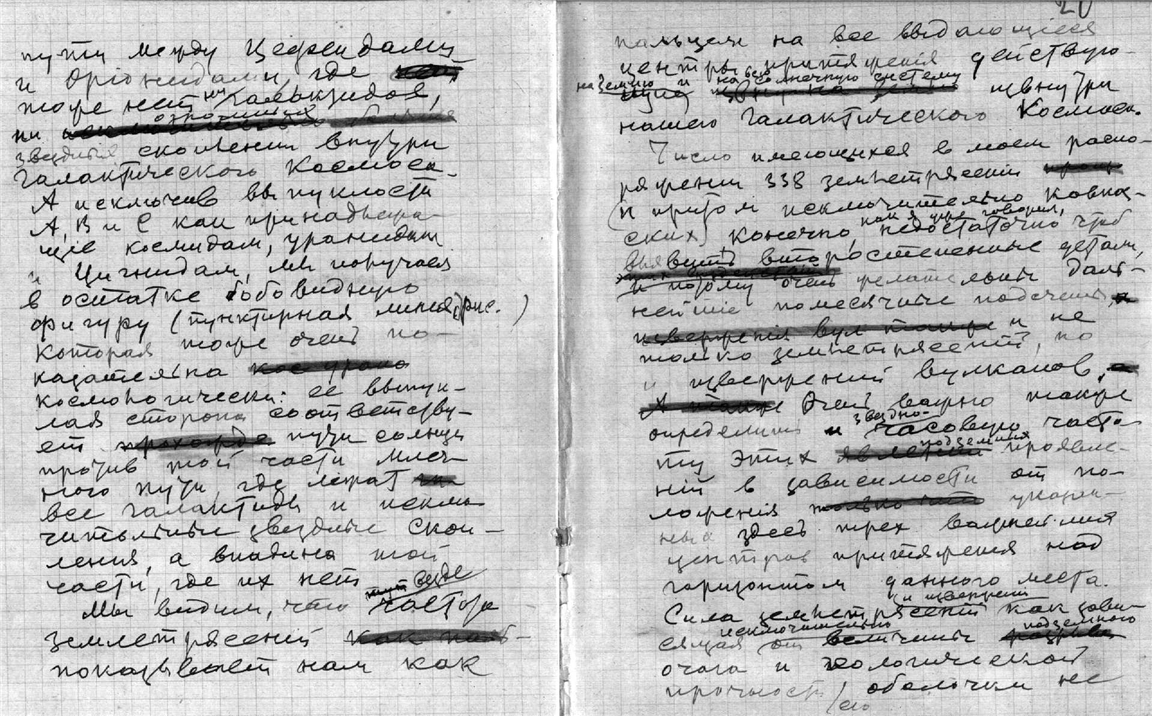 пути между Цефеидами
и Орионидами, где
тоже нет ни Халькидов,
ни огромных
звездных скоплений внутри
галактического Космоса.
А исключив выпуклости
А, В и С как принадлежа-
щие космидам, уранидам
и Цигнидам, мы получаем
в остатке бобовидную
фигуру (пунктирная линия рис. )
которая тоже очень по-
казательна
космологически: ее выпук-
лая сторона соответству-
ет пути солнца
против той части Млеч-
ного пути, где лежат
все галактиды и исклю-
чительные звездные скоп-
ления, а впадина той
части, где их нет
Мы видим, что частота
землетрясений
показывает нам как
20
пальцем на все выдающиеся
центры притяжения действую-
на Землю и на всю солнечную систему
извнутри
нашего галактического Космоса.
Число имеющихся в моем распо-
ряжении 338 землетрясений
(и притом исключительно кавказ-
ских) конечно, недостаточно чтоб
как я уже говорил,
второстепенные детали,
и потому очень желательны даль-
нейшие помесячные подсчеты,
и не
только землетрясений, но
и извержений вулканов.
Очень важно также
определить и звездно-
часовую часто-
ту этих подземных проявле-
ний в зависимости от по-
ложения указан-
ных здесь трех важнейших
центров притяжения над
горизонтом данного места.
Сила землетрясений и извержений как зави-
сящая исключительно от величины подземного
очага и геологической
прочности его оболочки не